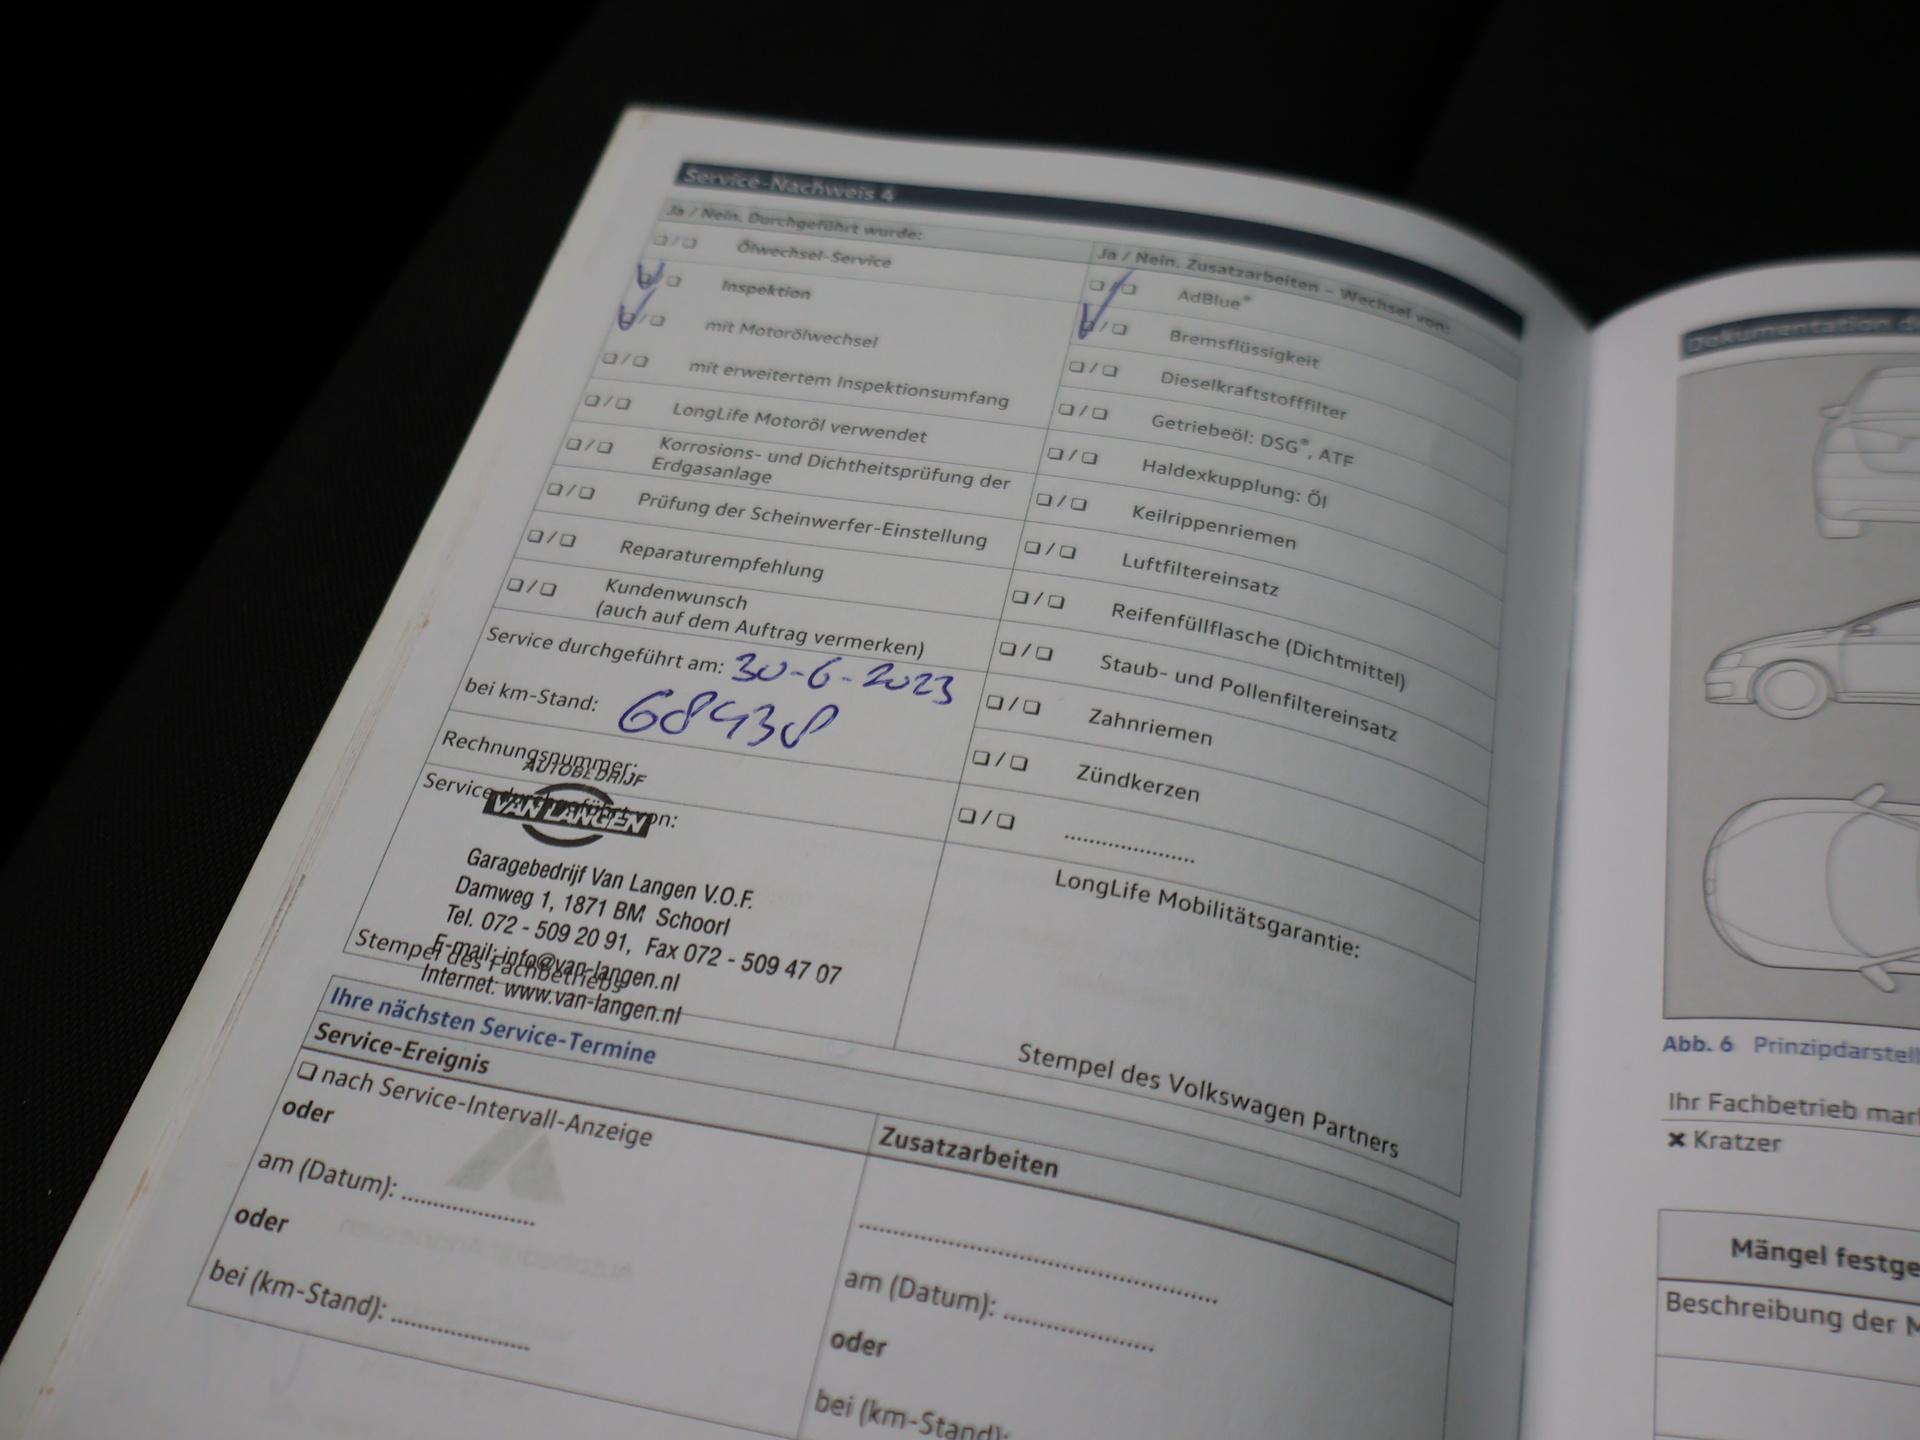 Service-Nachweis 4
Ja / Nein. Durchgeführt wurde:
Ölwechsel-Service
Inspektion
mit Motorölwechsel
mit erweitertem Inspektionsumfang
LongLife Motoröl verwendet
Korrosions- und Dichtheitsprüfung der
Erdgasanlage
Prüfung der Scheinwerfer-Einstellung
Reparaturempfehlung
Kundenwunsch
(auch auf dem Auftrag vermerken)
Service durchgeführt am: 30-6-2023
bei km-Stand: 68438
Rechnungsnummer:
AUTOBEDRIJF
Service durchgeführt von:
VAN LANGEN
Garagebedrijf Van Langen V.O.F.
Damweg 1, 1871 BM Schoorl
Tel. 072 - 509 20 91, Fax 072 - 509 47 07
E-mail: info@van-langen.nl
Stempel des Fachbetriebs
Internet: www.van-langen.nl
Ja / Nein. Zusatzarbeiten – Wechsel von:
AdBlue®
Bremsflüssigkeit
Dieselkraftstofffilter
Getriebeöl: DSG®, ATF
Haldexkupplung: Öl
Keilrippenriemen
Luftfiltereinsatz
Reifenfüllflasche (Dichtmittel)
Staub- und Pollenfiltereinsatz
Zahnriemen
Zündkerzen
LongLife Mobilitätsgarantie:
Stempel des Volkswagen Partners
Ihre nächsten Service-Termine
Service-Ereignis
nach Service-Intervall-Anzeige
oder
am (Datum):
oder
bei (km-Stand):
Zusatzarbeiten
am (Datum):
oder
bei (km-Stand):
Dokumentation
Abb. 6 Prinzipdarstell
Ihr Fachbetrieb mar
✖ Kratzer
Mängel festge
Beschreibung der M